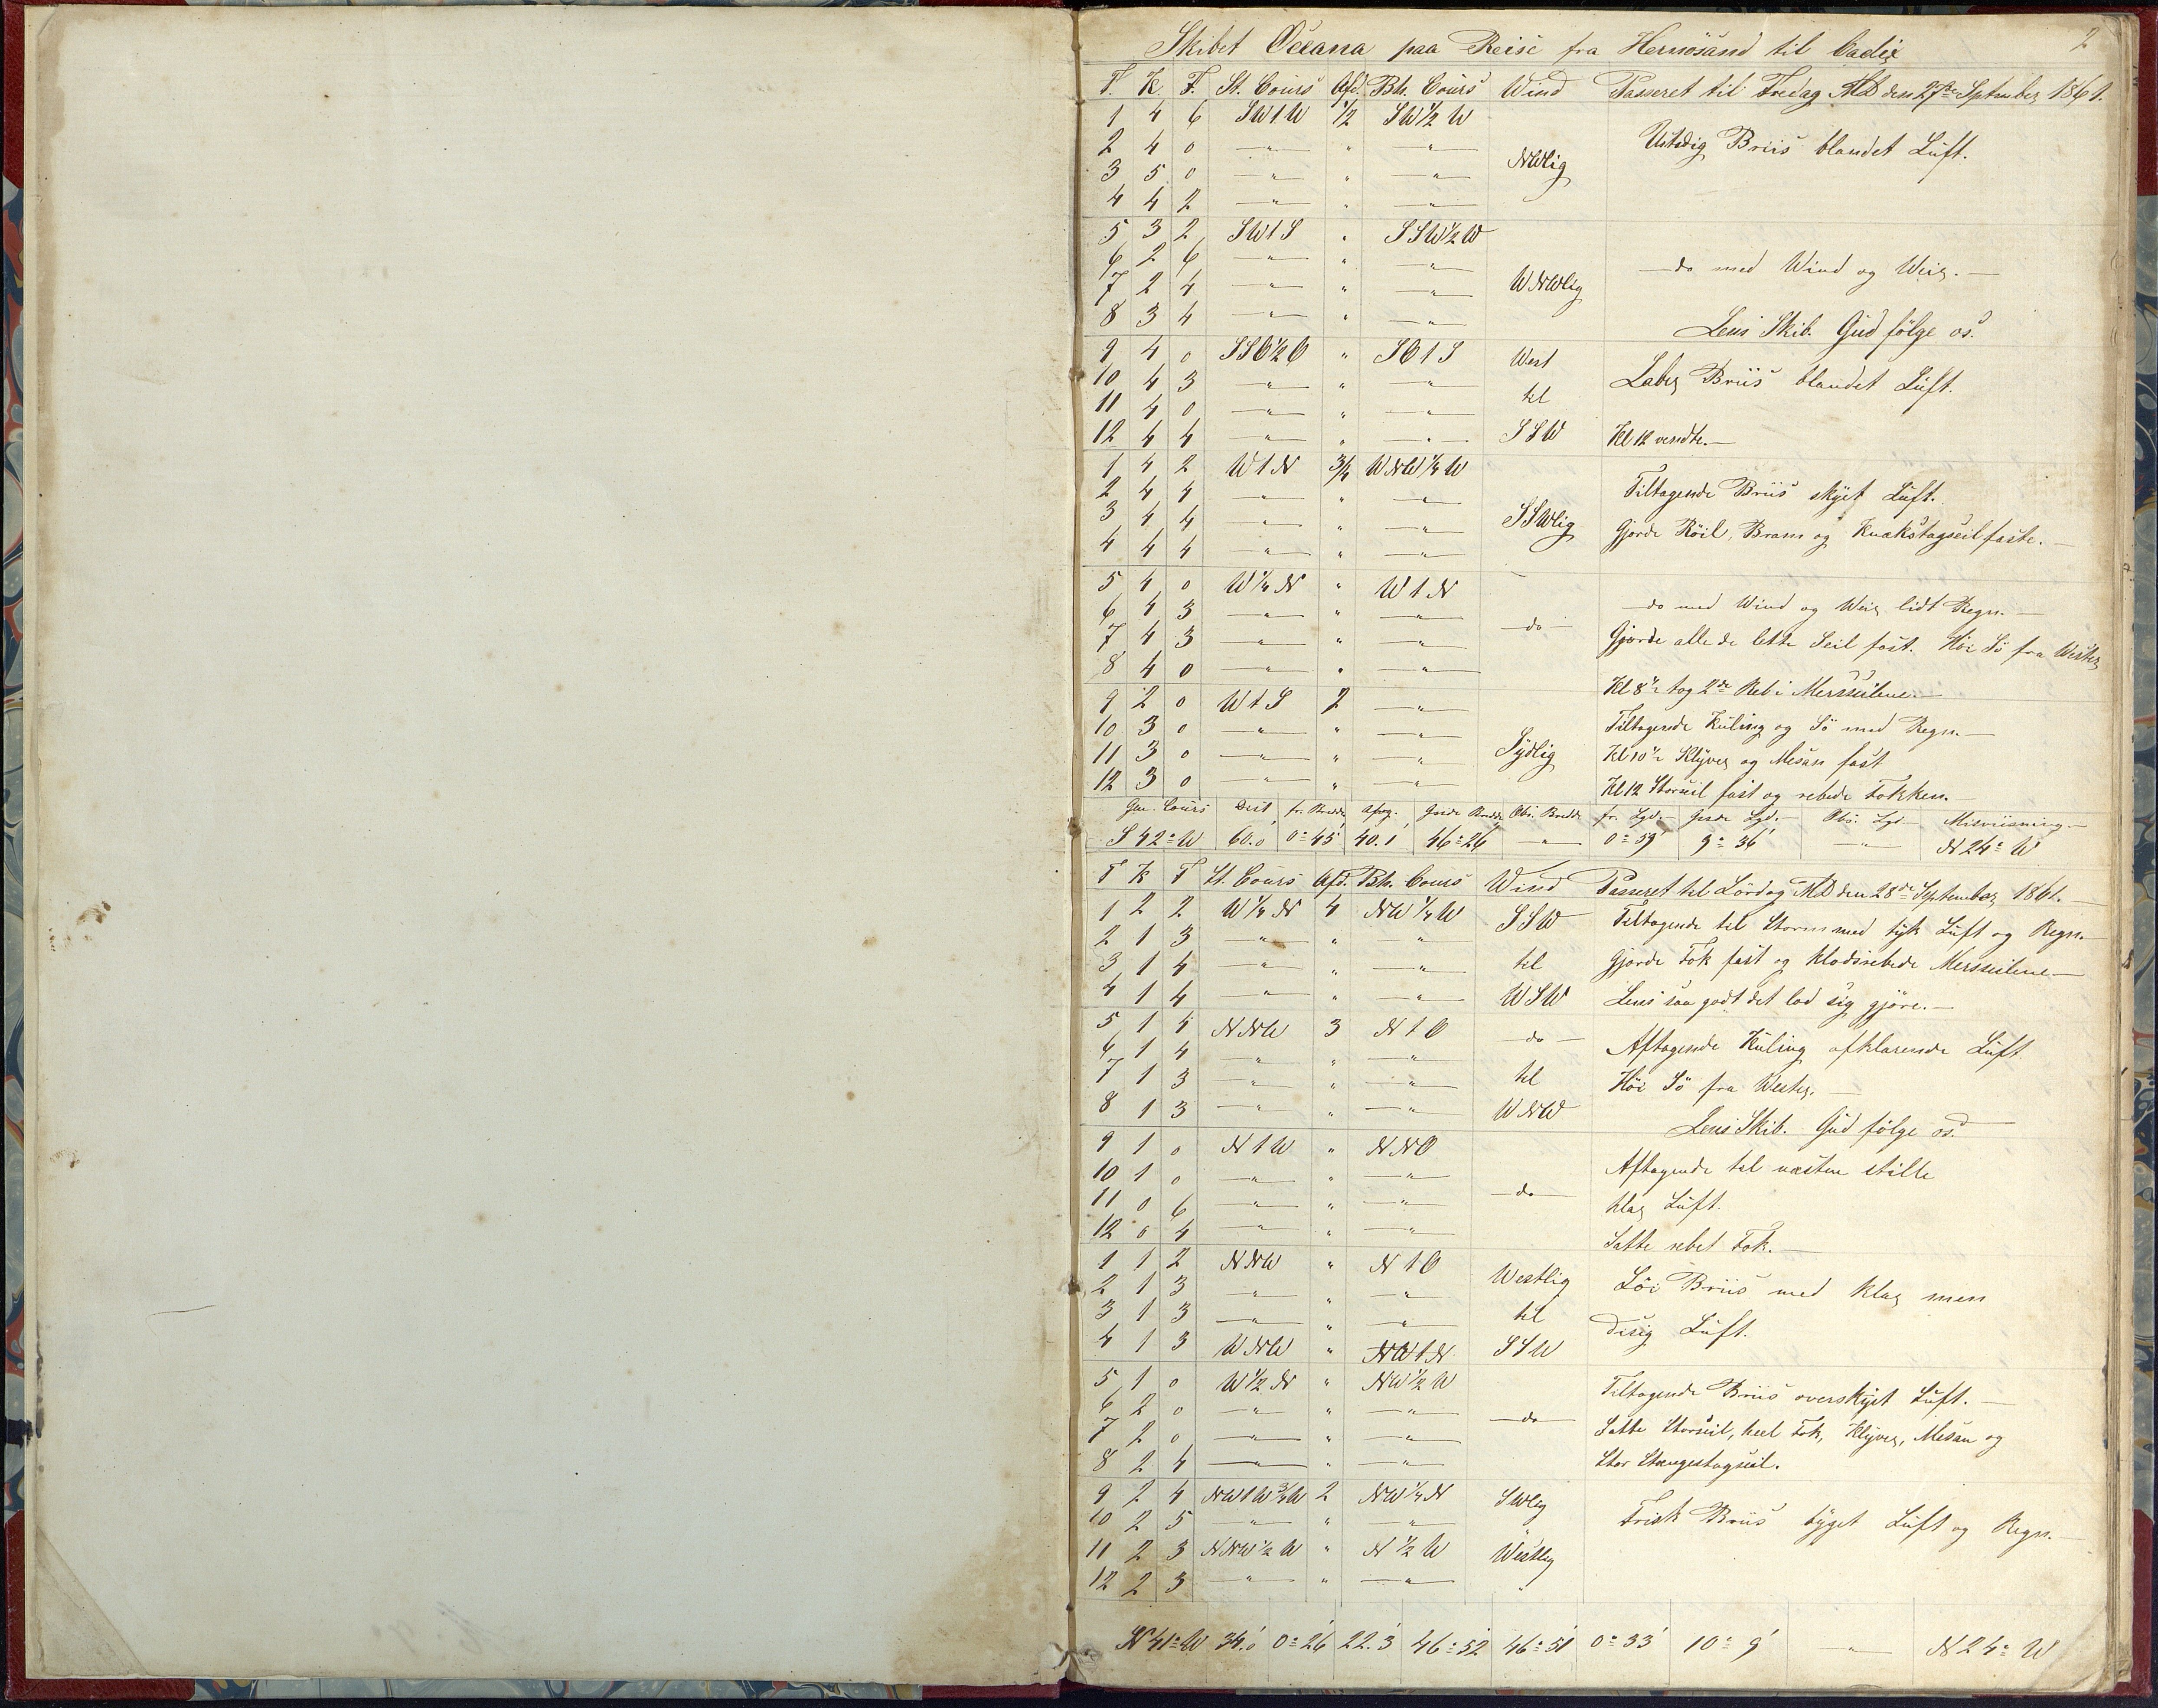 2
Skibet Oceana paa Reise fra Hernösand til Cadix
T. K. F. St. Cours Afd. Bh. Cours Wind Passeret til Fredag MD den 27de September 1861.
1 4 6 SW1W 1/2 SW1/2W
2 4 0 —"— " —"— Ustadig Briis blandet Luft.
3 5 0 —"— " —"— NWlig
4 4 2 —"— " —"—
5 3 2 SW1S " SSW1/2W
6 2 6 —"— " —"— —do med Wind og Weir.—
7 2 4 —"— " —"— WNWlig
8 3 4 —"— " —"— Lens Skib. Gud følge os.
9 4 0 SSO1/2O " SO1S West
10 4 3 —"— " —"— Laber Briis blandet Luft.
11 4 0 —"— " —"— til
12 4 4 —"— " —"— SSW Kl 12 vendte.—
1 4 2 W1N 3/4 WNW1/4W
2 4 4 —"— " —"— Tiltagende Briis skyet Luft.
3 4 4 —"— " —"— SSWlig Gjorde Röil, Bram og Knækstagseil faste.—
4 4 4 —"— " —"—
5 4 0 W1/4N " W1N
6 4 3 —"— " —"— —do med Wind og Weir lidt Regn.—
7 4 3 —"— " —"— —do— Gjorde alle de lette Seil fast. Höi Sö fra Wester
8 4 0 —"— " —"—
9 2 0 W1S 2 —"— Kl 8 1/2 tog 2de Reb i Mersseilene.—
10 3 0 —"— " —"— Tiltagende Kuling og Sö med Regn.—
11 3 0 —"— " —"— Sydlig Kl 10 1/2 Klyver og Mesan fast
12 3 0 —"— " —"— Kl 12 Storseil fast og rebede Fokken.
Gen. Cours Dist. fr. Bredde Afvg. Gisde Bredde Obs. Bredde fr. Lgd.— Gisde Lgd.— Obs. Lgd.— Misviisning—
S 42° W 60.0 0°45' 40.1 46°26' —"— 0°59' 9°36' —"— N 24° W
T K F St. Cours Afd. Bh. Cours Wind Passeret til Lördag MD den 28de September 1861.—
1 2 2 W1/4N 4 NW1/4W SSW Tiltagende til Storm med tyk Luft og Regn.—
2 1 3 —"— " —"—
3 1 4 —"— " —"— til Gjorde Fok fast og klodsrebede Mersseilene.—
4 1 4 —"— " —"— WSW Lens saa godt det lod sig gjöre.—
5 1 4 NNW 3 N1O —do— Aftagende Kuling afklarende Luft.
6 1 4 —"— " —"—
7 1 3 —"— " —"— til Höi Sö fra Wester.—
8 1 3 —"— " —"— WNW Lens Skib. Gud følge os.
9 1 0 N1W " NNO Aftagende til næsten stille
10 1 0 —"— " —"— —do—
11 0 6 —"— " —"— klar Luft.
12 0 4 —"— " —"— Satte rebet Fok.—
1 1 2 NNW " N1O Westlig
2 1 3 —"— " —"— Löi Briis med klar men
3 1 3 —"— " —"— til disig Luft.
4 1 3 WNW " NW1N SSW
5 1 0 W1/2N " NW1/2W Tiltagende Briis overskyet Luft.—
6 2 0 —"— " —"— —do—
7 2 0 —"— " —"— Satte Storseil, heel Fok, Klyver, Mesan og
8 2 4 —"— " —"— Stor Stængestagseil.
9 2 4 NW1W3/4W 2 NW1/4N SWlig
10 2 5 —"— " —"— " Frisk Briis tyget Luft og Regn.—
11 2 3 NNW1/2W " N1/2W Westlig
12 2 3 —"— " —"— "
N 41° W 34.0 0°26' 22.3 46°52' 46°51' 0°33' 10°9' —"— N 24° W